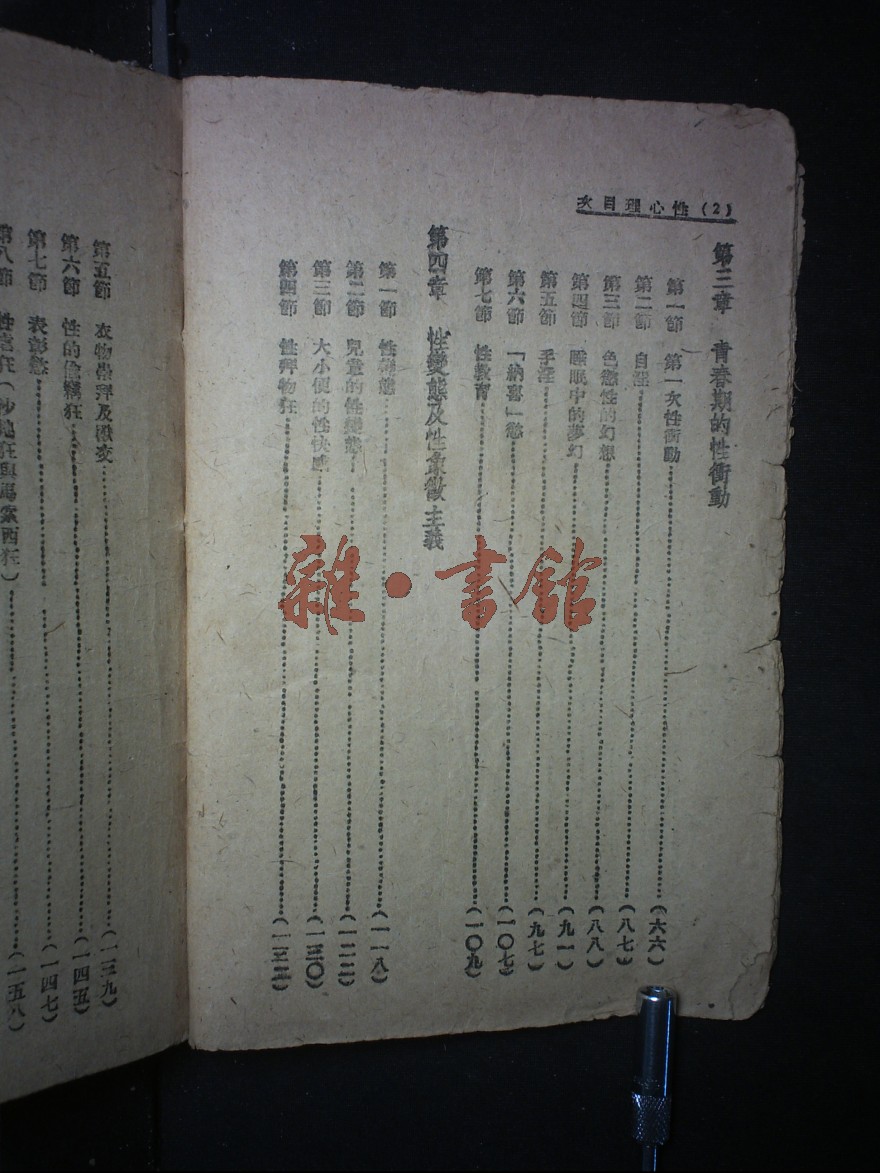 性心理目次 (2)
第三章 青春期的性衝動
第一節 第一次性衝動……(六六)
第二節 自淫……(八七)
第三節 色慾性的幻想……(八八)
第四節 睡眠中的夢幻……(九一)
第五節 手淫……(九七)
第六節 「納喜」慾……(一〇七)
第七節 性教育……(一〇九)
第四章 性變態及性象徵主義
第一節 性變態……(一一八)
第二節 兒童的性變態……(一二二)
第三節 大小便的性快感……(一三〇)
第四節 性拜物狂……
第五節 衣物崇拜及……(一三九)
第六節 性的偷竊狂……(一四五)
第七節 表彰慾……(一四七)
第八節 性虐狂(……狂與馬索西狂)……(一五八)
雜·書館